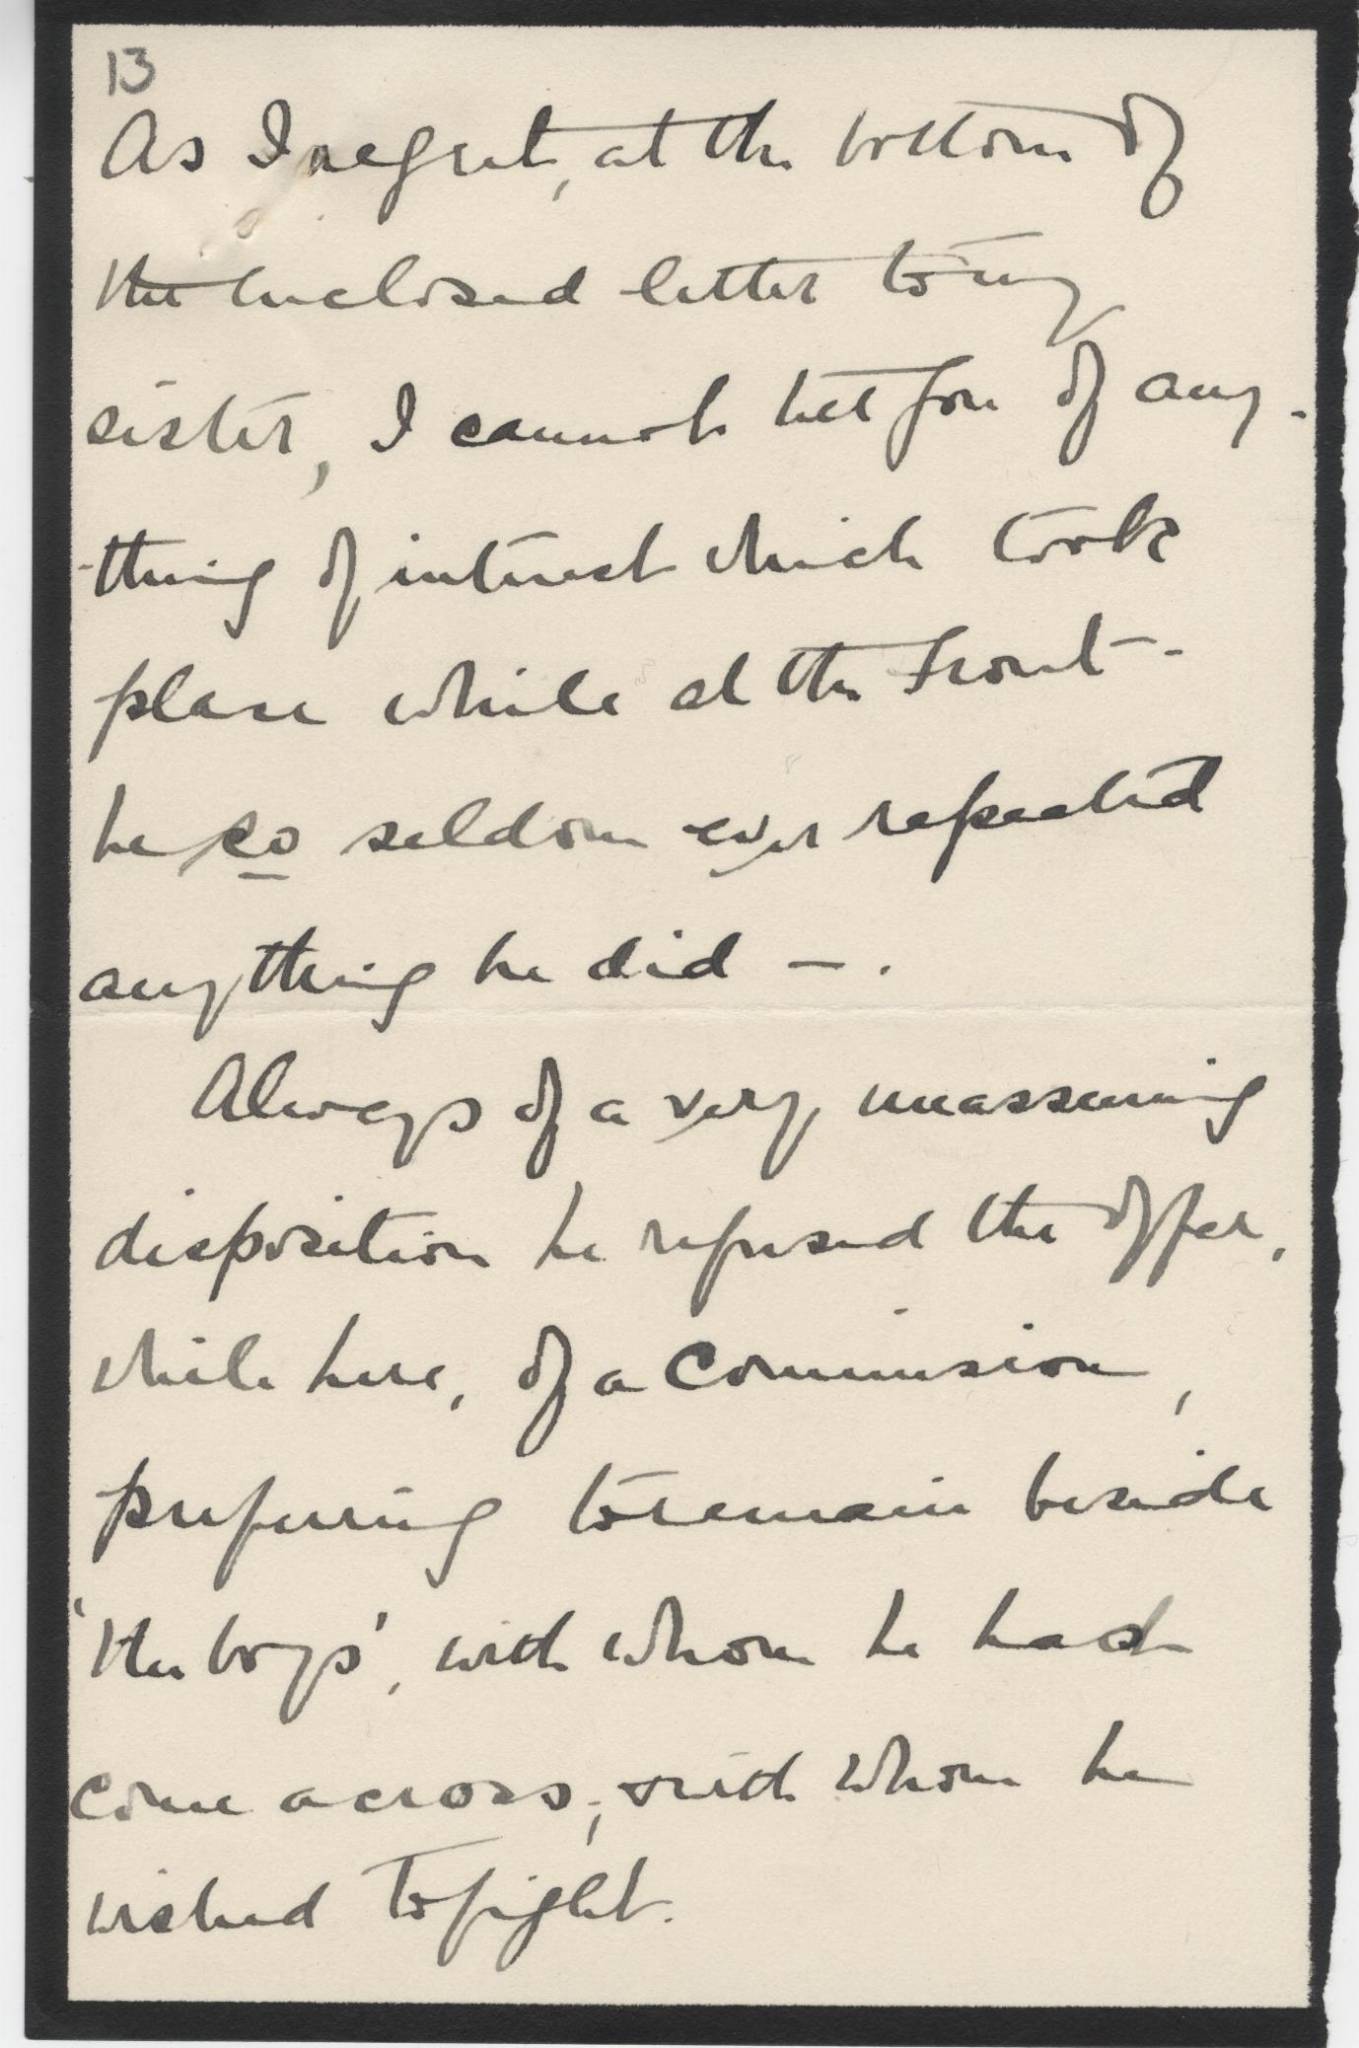 13
As I regret, at the bottom of
the enclosed letter to my
sister, I cannot tell you of any-
-thing of interest which took
place while at the Front -
he so seldom ever repeated
anything he did - .
Always of a very unassuming
disposition he refused the offer,
while here, of a Commission,
preferring to remain beside
'the boys', with whom he had
come across, & with whom he
wished to fight.